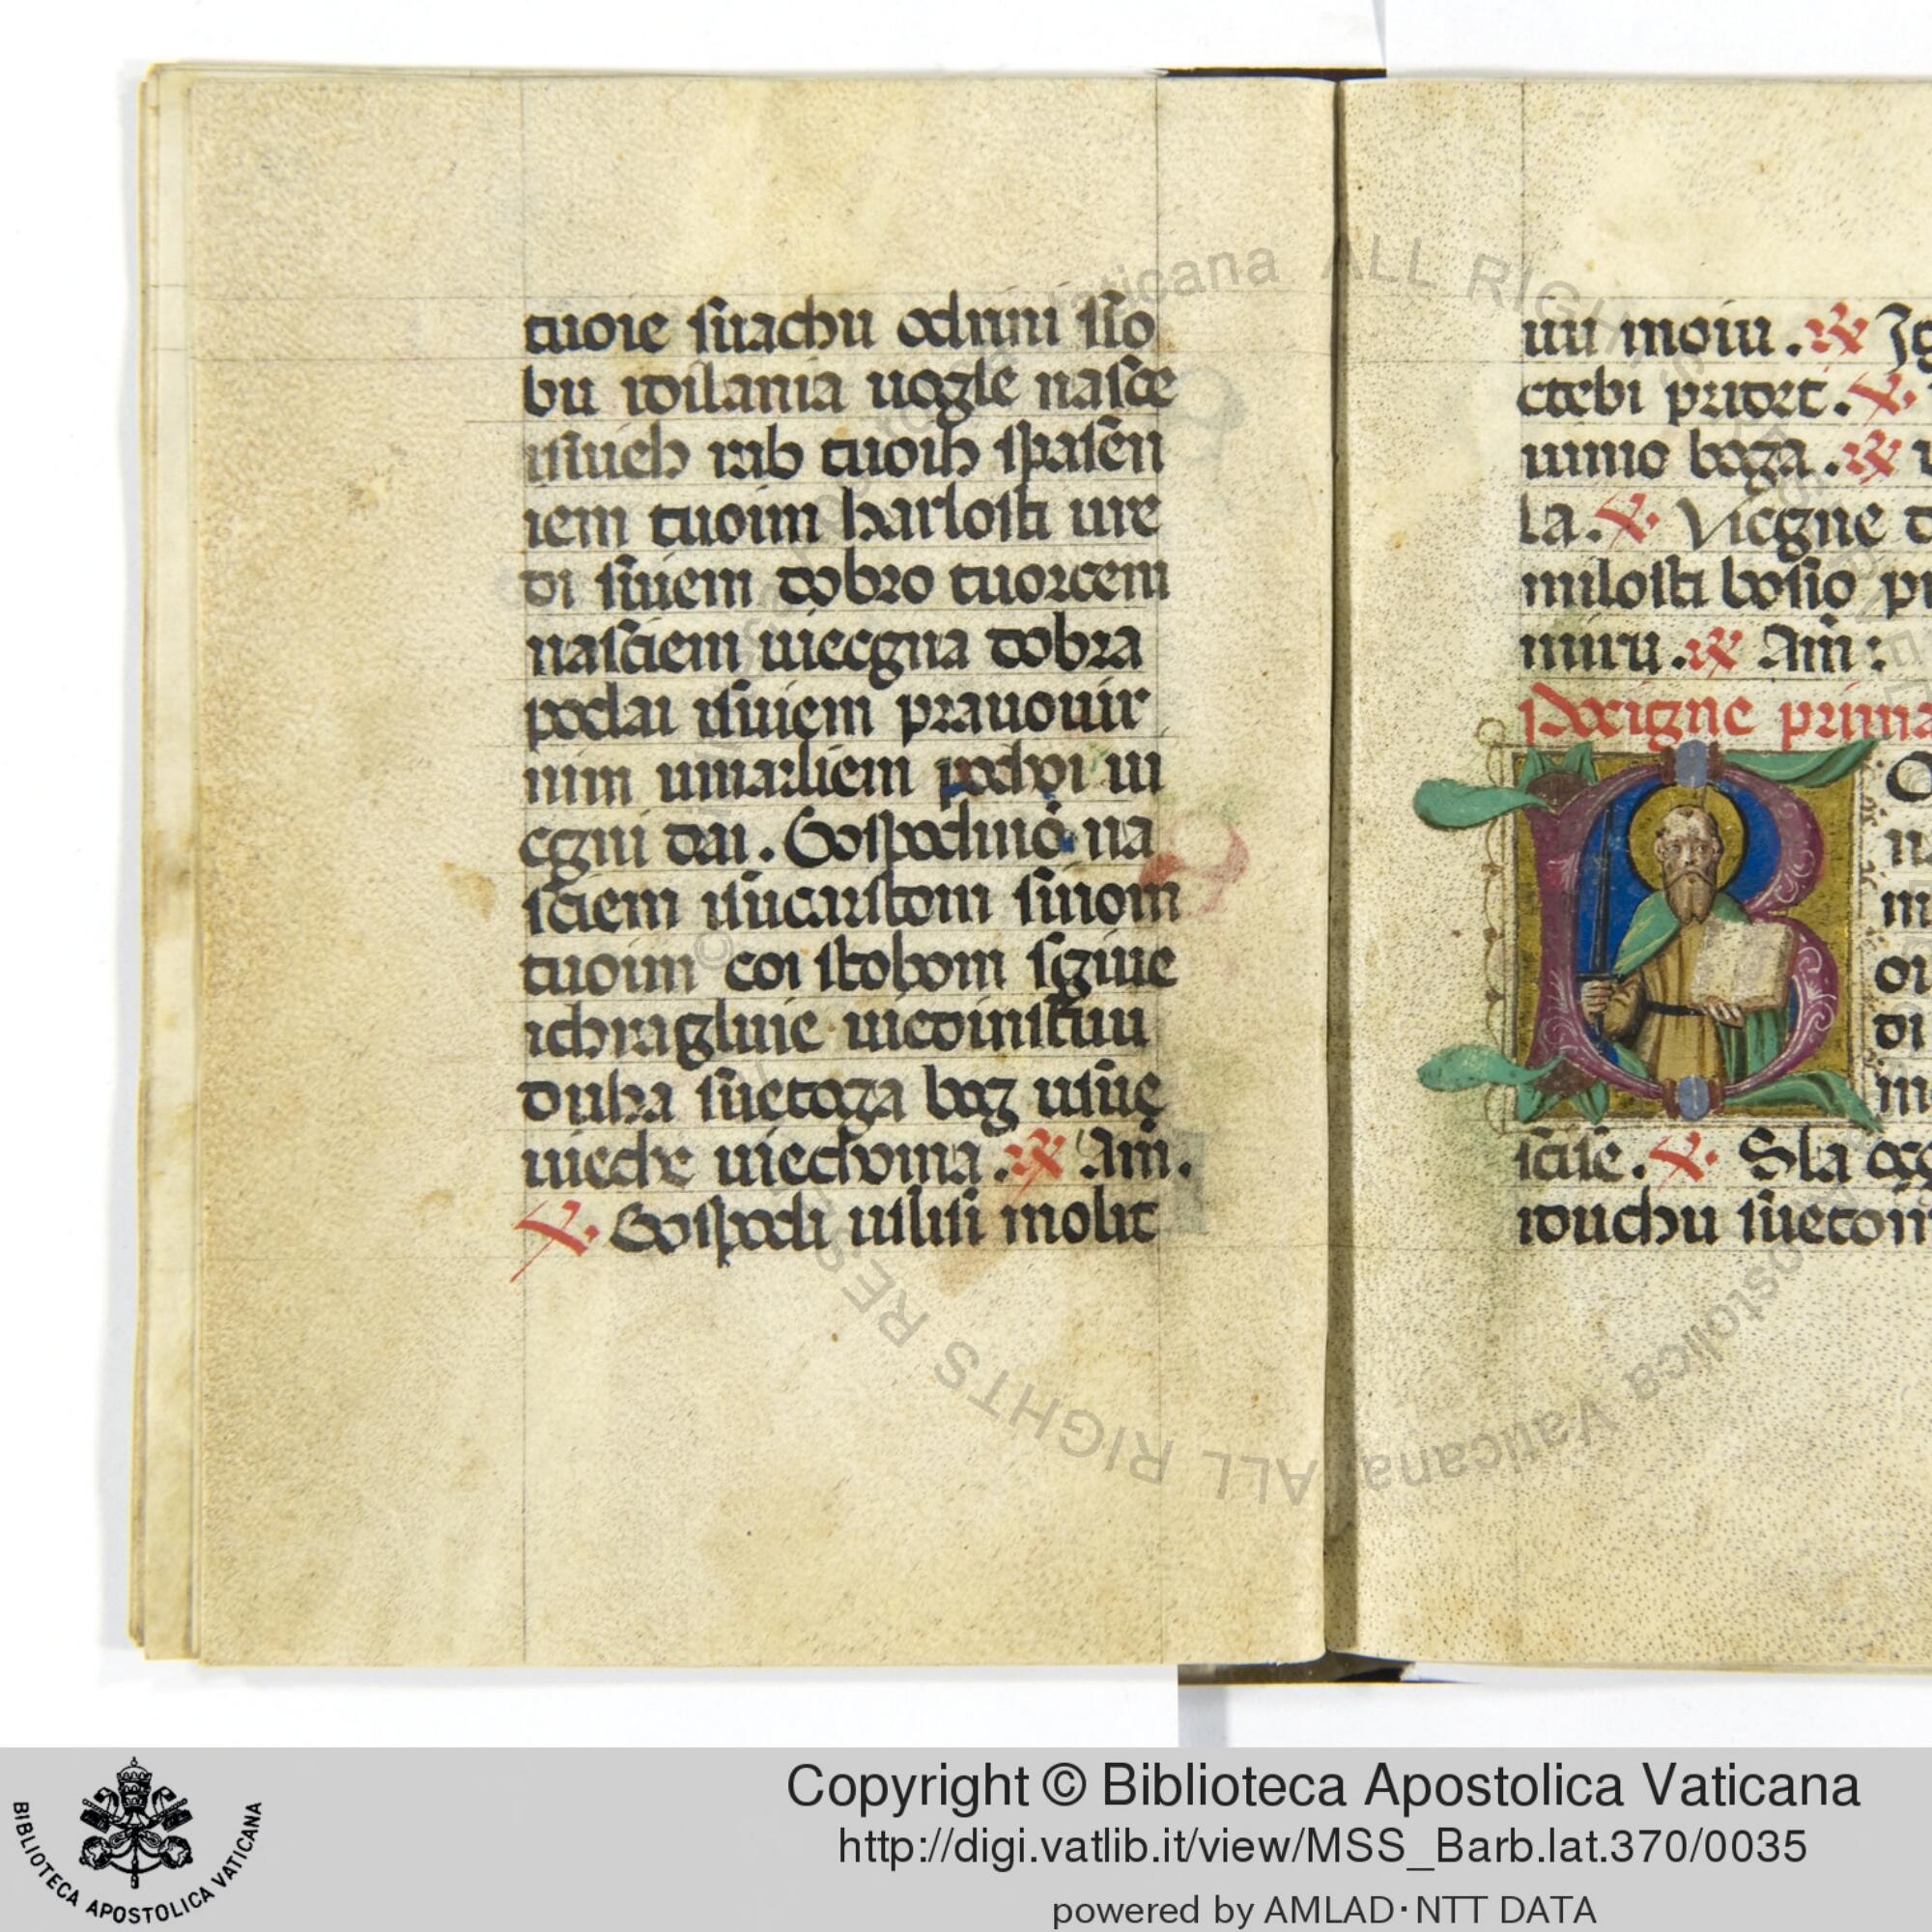 tuoie suachu odnni sso
bu idilania uogle nasce
isuich rab tuoih spasen
iem tuoim karlosti ure
di suiem dobro tuorcem
nasciem uiecgna dobra
podai isuiem prauouir
nim umarliem pochoi ui
cgni dai. Gospodino na
sciem isucarstom sinom
tuoim coi stobom sgiue
ichragliuie uiedinstuu
duha suetoga bog usue
uieche uiechoma. ℟ Am̄.
℣. Gospodi uslisi molit
uu moiu. ℟ Ig
ctebi pridet. ℣.
uimo boga. ℟
la. ℣. Vicgne d
milosti bosio pr
miru. ℟ Am̄:
scise. ℣. Sla oco
iduchu suetom
Copyright © Biblioteca Apostolica Vaticana
http://digi.vatlib.it/view/MSS_Barb.lat.370/0035
powered by AMLAD·NTT DATA
BIBLIOTECA APOSTOLICA VATICANA